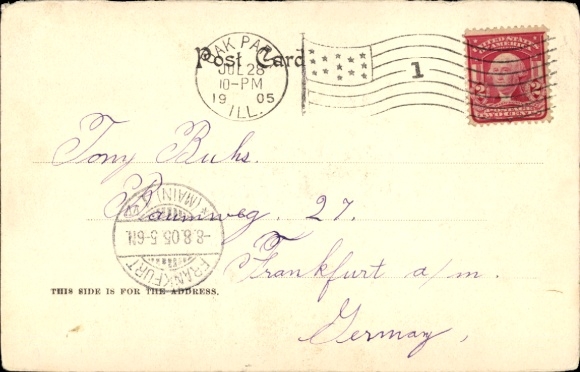 Post Card
OAK PARK
JUL 28
10-PM
1905
ILL.
1
UNITED STATES
OF AMERICA
2 2
POSTAGE
TWO CENTS
Tony Buhs.
Baumweg. 27.
Frankfurt a/m.
Germay,
FRANKFURT (MAIN)
-8.8.05.5-6N.
THIS SIDE IS FOR THE ADDRESS.